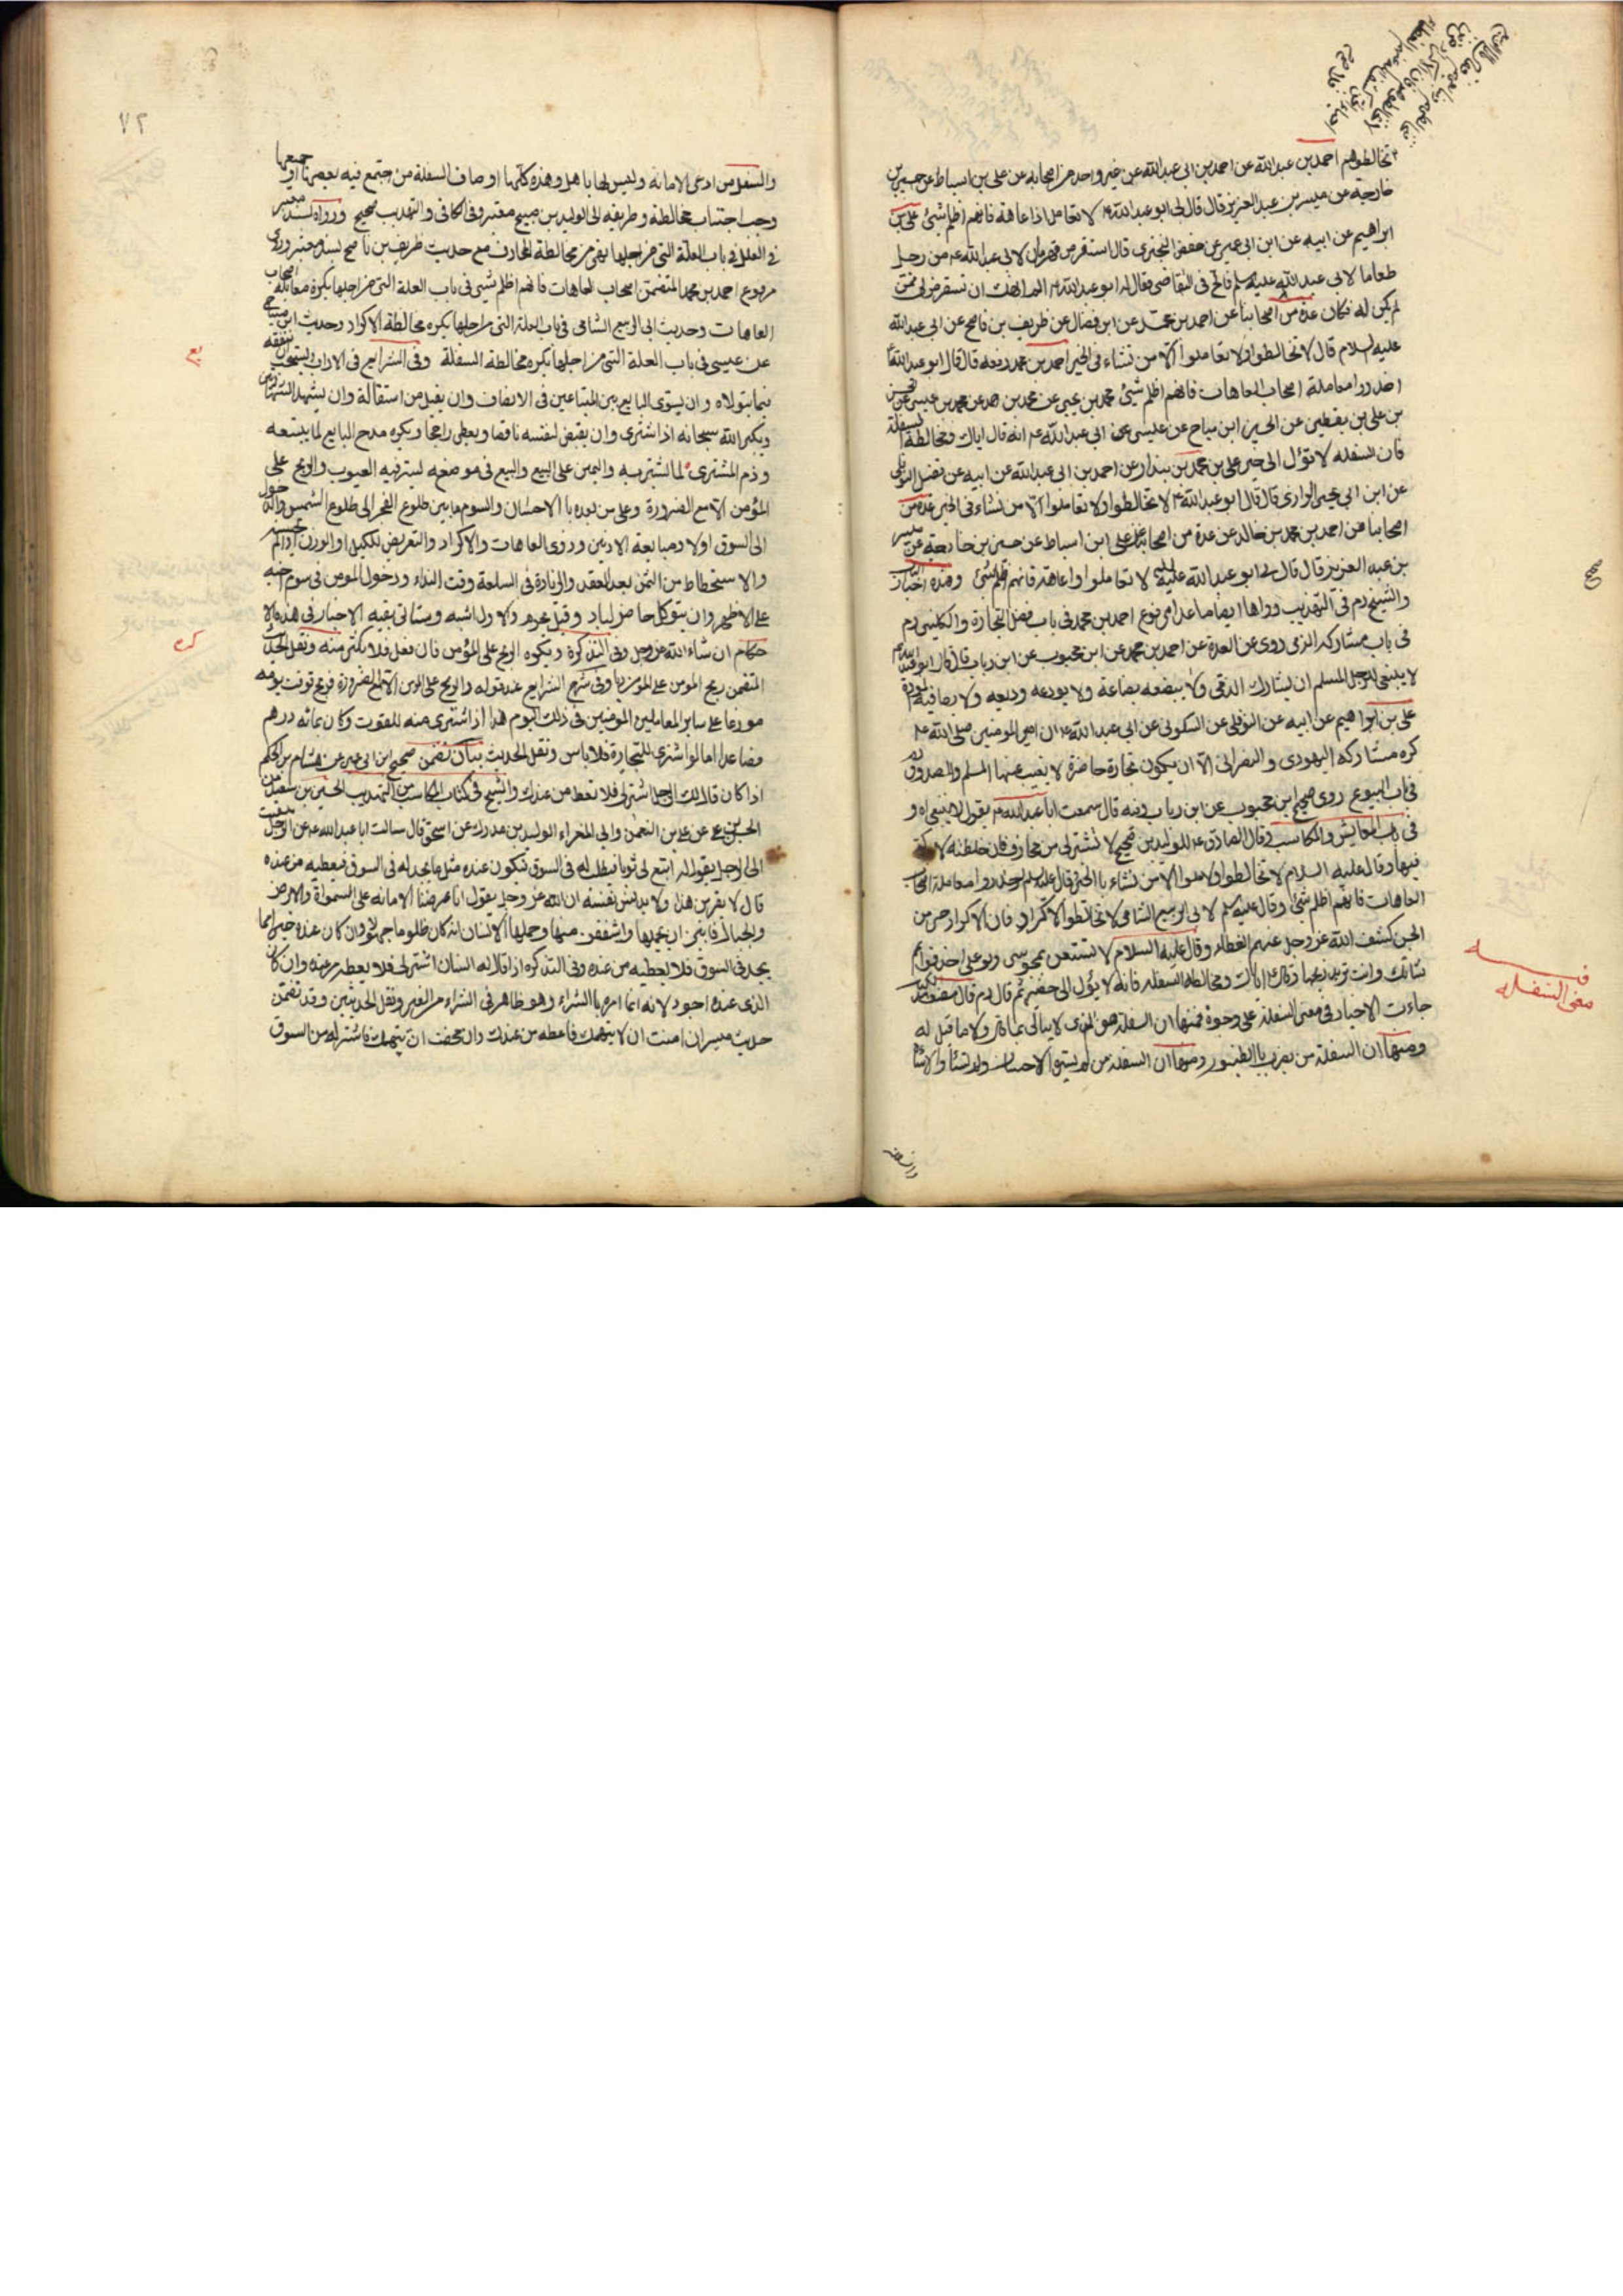 تخالطوهم احمد بن عبدالله عن احمد بن ابى عبدالله عن غير واحد من اصحابه عن على بن اسباط عن حسين بن
خارجه عن ميسر بن عبد العزيز قال قال لى ابو عبدالله ع لا تعامل ذا عاهة فانهم اظلم شئ على بن
ابراهيم عن ابيه عن ابن ابى عمير عن حفص البخترى قال استقرض قهرمان لابى عبدالله ع من رجل
طعاما لابى عبد الله عليه السلم فالح فى التقاضى فقال له ابو عبدالله ع الم انهك ان تستقرض لى ممن
لم يكن له فكان عدة من اصحابنا عن احمد بن محمد عن ابن فضال عن ظريف بن ناصح عن ابى عبدالله
عليه السلام قال لا تخالطوا ولا تعاملوا الا من نشاء فى الخير احمد بن محمد رفعه قال قال ابو عبدالله ع
احذروا معاملة اصحاب العاهات فانهم اظلم شئ محمد بن يحيى عن محمد بن احمد عن محمد بن عيسى عن الحسن
بن على بن يقطين عن الحسين ابن مياح عن عيسى عن ابى عبدالله ع انه قال اياك ومخالطة السفلة
فان السفله لا تؤل الى خير على بن محمد بن بندار عن احمد بن ابى عبدالله عن ابيه عن فضل النوفلى
عن ابن ابى يحيى الرازى قال قال ابو عبدالله ع لا تخالطوا ولا تعاملوا الا من نشاء فى الخير عدة من
اصحابنا عن احمد بن محمد بن خالد عن عدة من اصحابنا عن على ابن اسباط عن حسين بن خارجه عن ميسر
بن عبد العزيز قال قال لى ابو عبدالله عليه السلم لا تعاملوا ذا عاهة فانهم اظلم شئ وهذه اخبار
والشيخ ره فى التهذيب رواها ايضا ما عدا مرفوع احمد بن محمد فى باب فضل التجارة والكلينى ره
فى باب مشاركه الذمى روى عن العدة عن احمد بن محمد عن ابن محبوب عن ابن رياب قال قال ابو عبدالله ع
لا ينبغى للرجل المسلم ان يشارك الذمى ولا يبضعه بضاعة ولا يودعه وديعه ولا يصافيه المودة
على بن ابراهيم عن ابيه عن النوفلى عن السكونى عن ابى عبدالله ع ان امير المومنين صلى الله ع
كره مشاركه اليهودى والنصرانى الا ان يكون تجارة حاضرة لا يغيب عنها المسلم والصدوق ره
فى باب البيوع روى صحيح ابن محبوب عن ابن رياب وفيه قال سمعت ابا عبدالله ع يقول لا ينبغى اه و
فى باب المعايش والمكاسب وقال الصادق ع للوليد بن صبيح لا تشتر لى من محارف فان خلطته لا بركة
فيها وقال عليه السلام لا تخالطوا ولا تعاملوا الا من نشاء بالخير وقال عليه السلم احذروا معاملة اصحاب
العاهات فانهم اظلم شئ وقال عليه السلم لابى الربيع الشامى لا تخالطوا الاكراد فان الاكراد حى من
الجن كشف الله عز وجل عنهم الغطاء وقال عليه السلام لا تستعن بمجوسى ولو على اخذ قوائم
شاتك وانت تريد ذبحها وقال ع اياك ومخالطة السفله فانه لا يؤل الى خير ثم قال ره قال مصنف
جاءت الاخبار فى معنى السفلة على وجوه فمنها ان السفلة هو الذى لا يبالى بما قال ولا ما قيل له
ومنها ان السفلة من يضرب بالطنبور ومنها ان السفلة من لم يسره الاحسان ولم تسؤه الاساءة
والسفلة
صح
معنى السفله
٧٢
والسفل من ادعى الامانه وليس لها باهل وهذه كلها اوصاف السفلة من اجتمع فيه بعضها او جميعها
وجب اجتناب مخالطته وطريقه الى الوليد بن صبيح معتبر وفى الكافى والتهذيب صحيح ورواه بسند معتبر
فى العلل فى باب العلة التى من اجلها نهى عن مخالطة المحارف مع حديث ظريف بن ناصح بسند معتبر وروى
مرفوع احمد بن محمد المتضمن اصحاب العاهات فانهم اظلم شئ فى باب العلة التى من اجلها يكره معاملة اصحاب
العاهات وحديث ابى الربيع الشامى فى باب العلة التى من اجلها يكره مخالطة الاكراد وحديث ابن مياح
عن عيسى فى باب العلة التى من اجلها يكره مخالطة السفلة وفى الشرايع فى الاداب يستحب التفقه
فيما يتولاه وان يسوى البايع بين المتبايعين فى الانصاف وان يقيل من استقالة وان يشهد الشهادتين
ويكبر الله سبحانه اذا اشترى وان يقبض لنفسه ناقصا ويعطى راجحا ويكره مدح البايع لما يبيعه
وذم المشترى لما يشتريه واليمين على البيع والبيع فى موضع يستر فيه العيوب والربح على
المؤمن الا مع الضرورة وعلى من يعده بالاحسان والسوم ما بين طلوع الفجر الى طلوع الشمس والدخول
الى السوق اولا ومبايعة الادنين وذوى العاهات والاكراد والتعرض للكيل او الوزن اذا لم يحسنه
والاستحطاط من الثمن بعد العقد والزيادة فى السلعة وقت النداء ودخول المومن فى سوم اخيه
على الاظهر وان يتوكل حاضر لباد وقيل يحرم والاول اشبه وستاتى بقيه الاخبار فى هذه الا
حكام ان شاء الله عز وجل وفى التذكرة ويكره الربح على المؤمن فان فعل فلا يكثر منه ونقل الحديث
المتضمن ربح المومن على المومن ربا وفى شرح الشرايع عند قوله والربح على المومن الا مع الضرورة فيربح قوت يومه
موزعا على ساير المعاملين المومنين فى ذلك اليوم هذا اذا اشترى منه للقوت وكان بمائة درهم
فصاعدا اما لو اشترى للتجارة فلا باس ونقل الحديث بيان تضمن صحيح ابن ابى عمير عن هشام بن الحكم
اذا كان قال لك الرجل اشتر لى فلا تعط من عندك والشيخ فى كتاب المكاسب من التهذيب الحسين بن سعيد عن
الحسن بن على عن على بن النعمن وابى المغراء والوليد بن مدرك عن اسحق قال سالت ابا عبدالله ع عن الرجل يبعث
الى الرجل يقول له ابتع لى ثوبا فيطلب له فى السوق فيكون عنده مثل ما يجد له فى السوق فيعطيه من عنده
قال لا يقربن هذا ولا يدنس نفسه ان الله عز وجل يقول انا عرضنا الامانه على السموات والارض
والجبال فابين ان يحملنها واشفقن منها وحملها الانسان انه كان ظلوما جهولا وان كان عنده خير مما
يجد فى السوق فلا يعطيه من عنده وفى التذكره اذا قال له انسان اشتر لى فلا يعطه من عنده وان كان
الذى عنده اجود لانه انما امره بالشراء وهو ظاهر فى الشراء من الغير ونقل الحديثين وقد تضمن
حديث ميسر ان امنت ان لا يتهمك فاعطه من عندك وان خفت ان يتهمك فاشتر له من السوق
كره